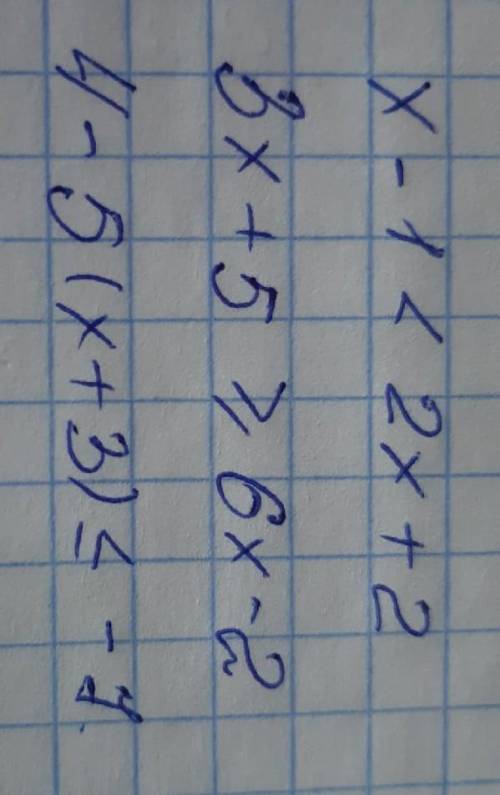 x - 1 < 2x + 2
3x + 5 ≥ 6x - 2
4 - 5(x + 3) ≤ -1